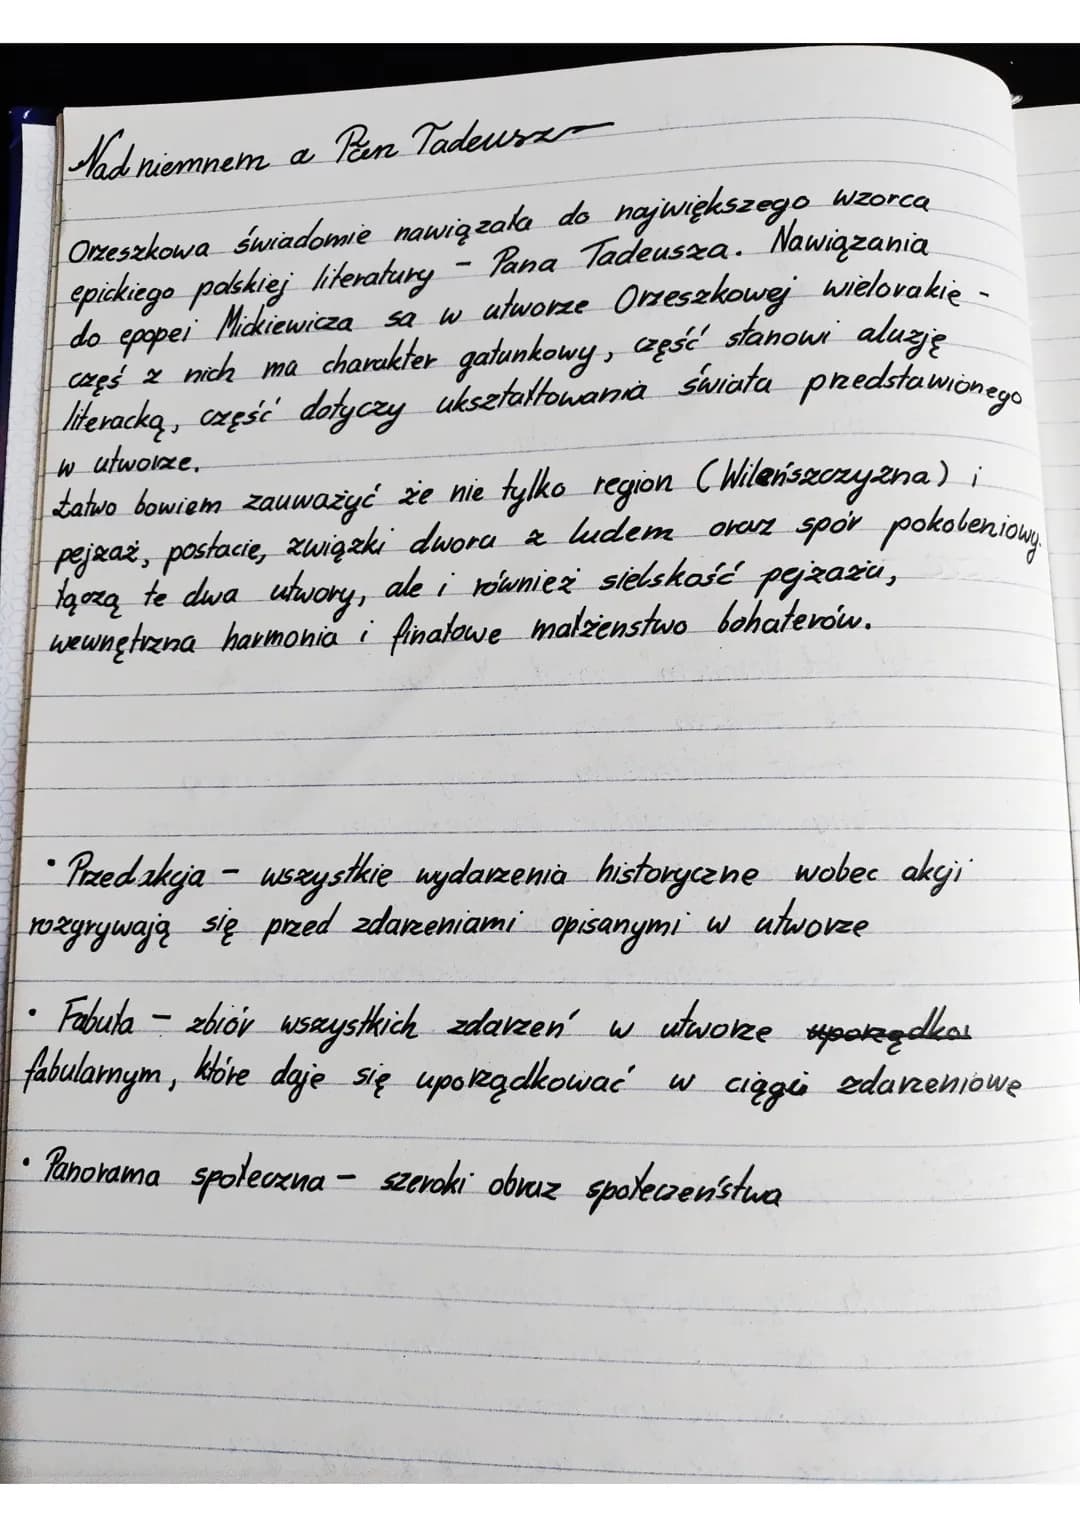 Nad niemnem a Pan Tadeusz
Orzeszkowa świadomie nawiązała do największego wzorca
epickiego polskiej literatury - Pana Tadeusza. Nawiązania
do epopei Mickiewicza sa w utworze Orzeszkowej wielorakie -
częś z nich ma charakter gatunkowy, część stanowi aluzję
literacką, część dotyczy ukształtowania świata przedstawionego
w utworze.
Łatwo bowiem zauważyć że nie tylko region (Wileńszczyzna) i
pejzaż, postacie, związki dworu z ludem oraz spór pokoleniowy.
łączą te dwa utwory, ale i również sielskość pejzażu,
wewnętrzna harmonia i finałowe małżenstwo bohaterów.
• Przedakcja - wszystkie wydarzenia historyczne wobec akcji
rozgrywają się przed zdarzeniami opisanymi w utworze
• Fabuła - zbiór wszystkich zdarzeń w utworze uporządkow
fabularnym, które daje się uporządkować w ciągi zdarzeniowe
• Panorama społeczna - szeroki obraz społeczeństwa